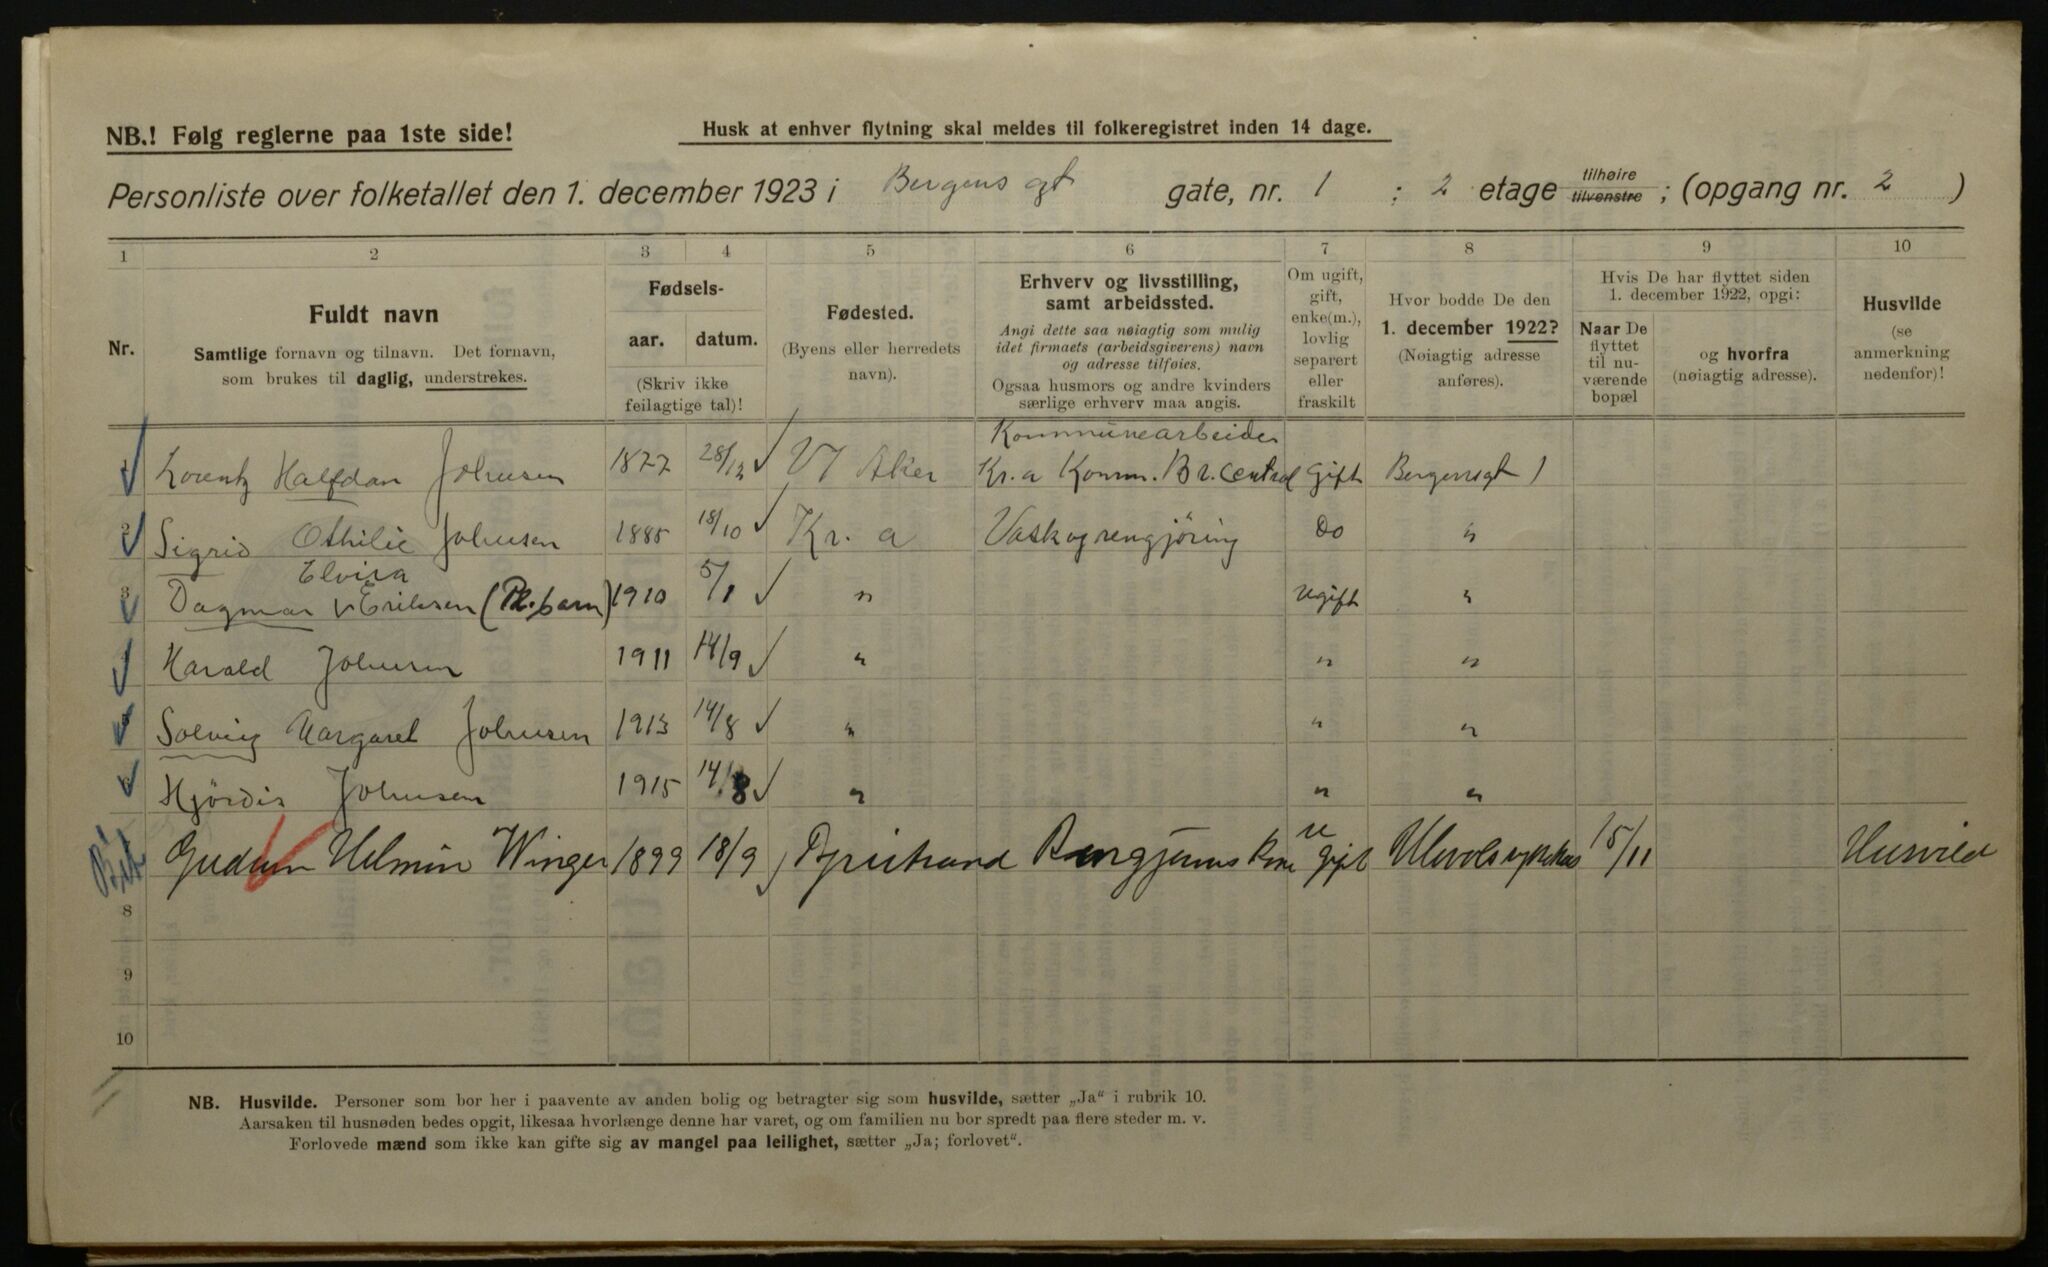 NB.! Følg reglerne paa 1ste side!
Husk at enhver flytning skal meldes til folkeregistret inden 14 dage.
Personliste over folketallet den 1. december 1923 i Bergens gt gate, nr. 1 ; 2 etage tilhøire tilvenstre ; (opgang nr. 2 )
1 2 3 4 5 6 7 8 9 10
Nr.
Fuldt navn
Samtlige fornavn og tilnavn. Det fornavn,
som brukes til daglig, understrekes.
Fødsels-
aar. datum.
(Skriv ikke
feilagtige tal)!
Fødested.
(Byens eller herredets
navn).
Erhverv og livsstilling,
samt arbeidssted.
Angi dette saa nøiagtig som mulig
idet firmaets (arbeidsgiverens) navn
og adresse tilføies.
Ogsaa husmors og andre kvinders
særlige erhverv maa angis.
Om ugift,
gift,
enke(m.),
lovlig
separert
eller
fraskilt
Hvor bodde De den
1. december 1922?
(Nøiagtig adresse
anføres).
Hvis De har flyttet siden
1. december 1922, opgi:
Naar De
flyttet
til nu-
værende
bopæl
og hvorfra
(nøiagtig adresse).
Husvilde
(se
anmerkning
nedenfor)!
Kommunearbeider
1 Lorentz Halfdan Johnsen 1877 28/12 V Aker Kr.a Komm. Br. central Gift Bergensgt 1
2 Sigrid Othilie Johnsen 1885 18/10 Kr. a Vask og rengjöring Do "
Elvira
3 Dagmar Eriksen (Pl.barn) 1910 5/1 " Ugift "
4 Harald Johnsen 1911 14/9 " " "
5 Solveig Margaret Johnsen 1913 14/8 " " "
6 Hjördis Johnsen 1915 14/8 " " "
Gudrun Helmin Winger 1899 18/9 kone u gift 15/11 Husvild
8
9
10
NB. Husvilde. Personer som bor her i paavente av anden bolig og betragter sig som husvilde, sætter „Ja“ i rubrik 10.
Aarsaken til husnøden bedes opgit, likesaa hvorlænge denne har varet, og om familien nu bor spredt paa flere steder m. v.
Forlovede mænd som ikke kan gifte sig av mangel paa leilighet, sætter „Ja; forlovet“.